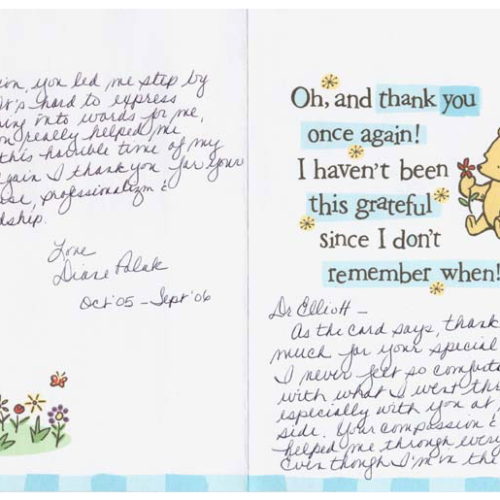 ion, you led me step by
It's hard to express
ing into words for me,
on really helped me
this horrible time of my
gain I thank you for your
ise, professionalizm &
dship.
Love
Diane Polak
Oct '05 - Sept '06
Oh, and thank you
once again!
I haven't been
this grateful
since I don't
remember when!
Dr Elliott -
As the card says, thank
much for your special
I never felt so comforta
with what I went thr
especially with you at
side. Your compassion &
helped me through every
Even though I'm in the